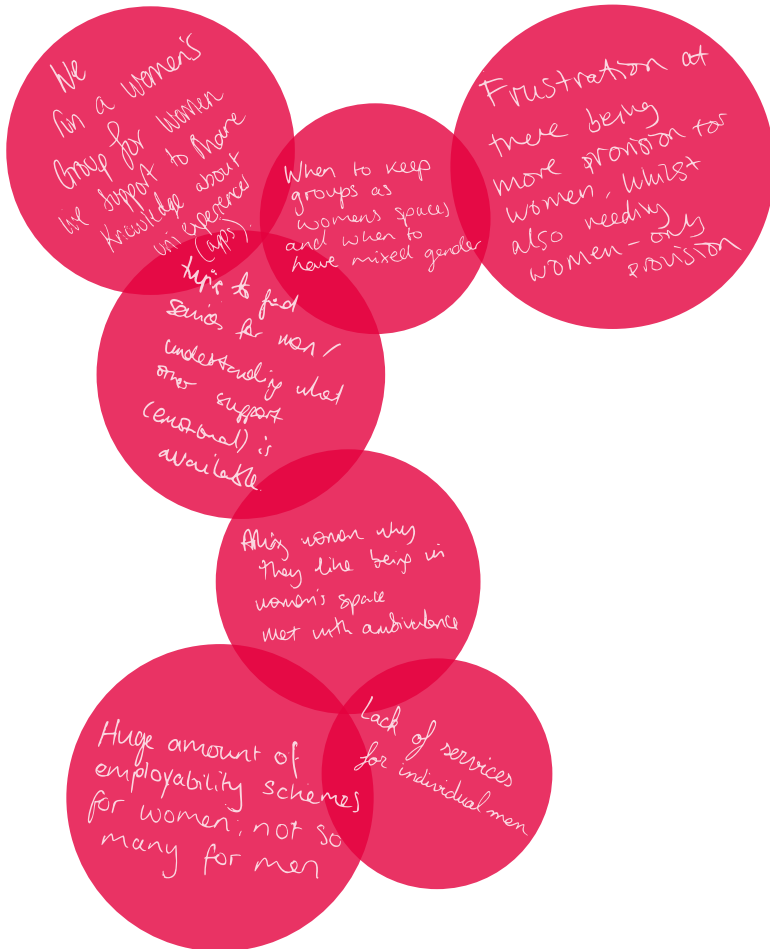 We
run a women's
Group for women
we support to share
knowledge about
uni experience
(aps).
When to keep
groups as
womens spaces
and when to
have mixed gender
Frustration at
there being
more provision for
women, whilst
also needing
women-only
provision
to find
services for men /
understanding what
other support
(emotional) is
available.
women why
they like being in
women's space
met with ambivalence
Huge amount of
employability schemes
for women; not so
many for men
Lack of services
for individual men